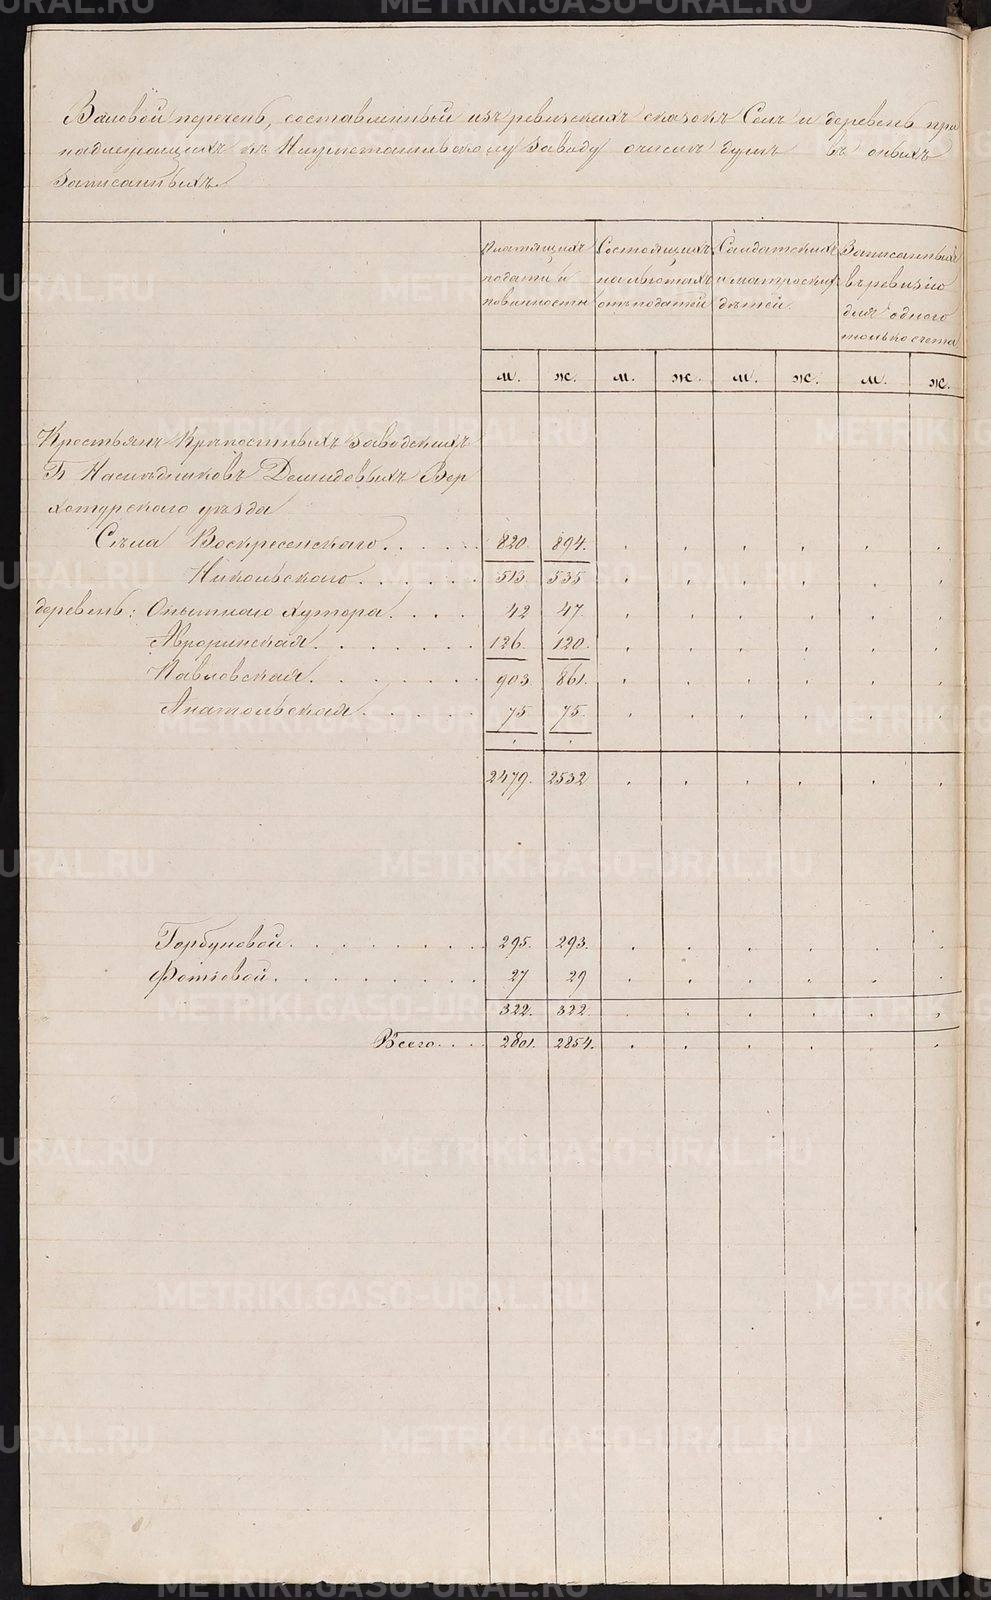 METRIKI.GASO-URAL.RU
Валовой перечень, составленный изъ ревизскихъ сказокъ Селъ и деревень при
надлежащихъ къ Нижнетагильскому Заводу о числѣ душъ въ оныхъ
Записанныхъ.
Платящихъ
подати и
повинности
Состоящихъ
на льготахъ
отъ податей
Салдатскихъ
и матроских
дѣтей.
Записанныхъ
въ ревизію
для одного
только счета
м. ж. м. ж. м. ж. м. ж.
Крестьянъ Крѣпостныхъ заводскихъ
Гг Наслѣдниковъ Демидовыхъ Вер
хотурскаго уѣзда
Съла Воскресенскаго. 820. 894.
Никольскаго. 513. 535
деревень: Опытнаго хутора. 42 47.
Авроринская. 126. 120.
Павловская. 903. 861.
Анатольская. 75. 75.
2479. 2532
Горбуновой. 295. 293.
Фотѣевой. 27 29
322. 322.
Всего. 2801. 2854.